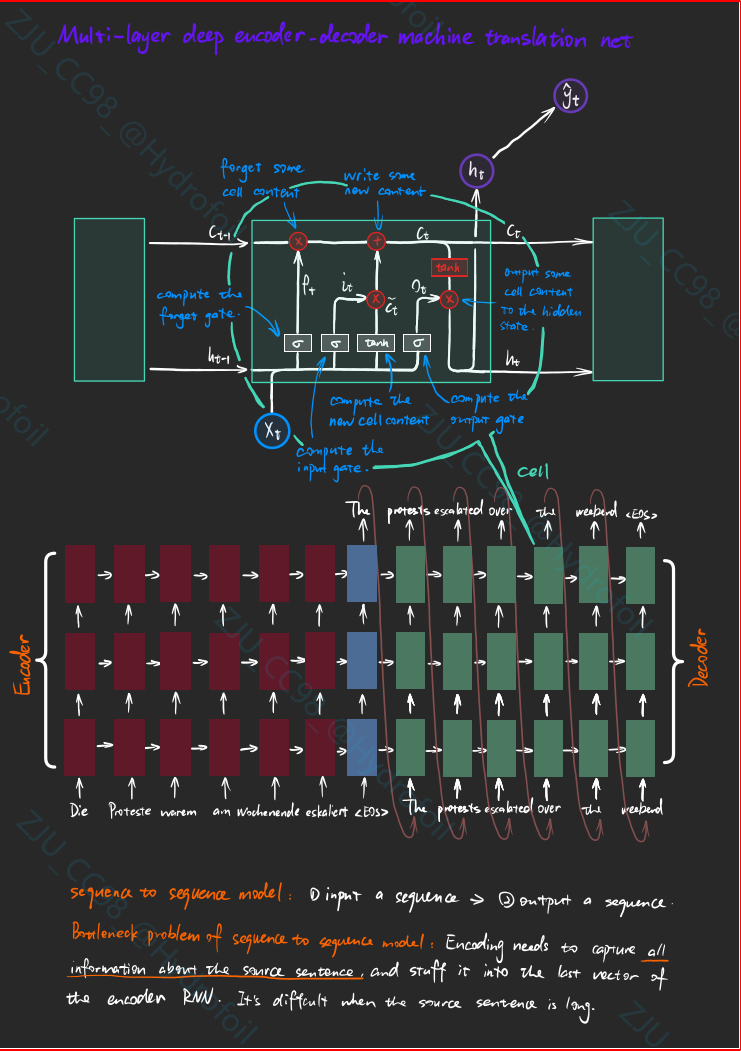 Multi-layer deep encoder-decoder machine translation net
ŷt
ht
forget some
cell content
write some
new content
Ct-1
Ct
Ct
tanh
output some
cell content
to the hidden
state.
compute the
forget gate.
ft
it
C̃t
Ot
σ
σ
tanh
σ
ht-1
ht
Xt
compute the
new cell content
compute the
output gate
compute the
input gate.
cell
The protests escalated over the weekend <EOS>
Encoder
Decoder
Die Proteste warem am Wochenende eskaliert <EOS> The protests escalated over the weekend
sequence to sequence model: ① input a sequence → ② output a sequence.
Bottleneck problem of sequence to sequence model: Encoding needs to capture all
information about the source sentence, and stuff it into the last vector of
the encoder RNN. It's diffcult when the source sentence is long.
ZJU_CC98_@Hydrofoil